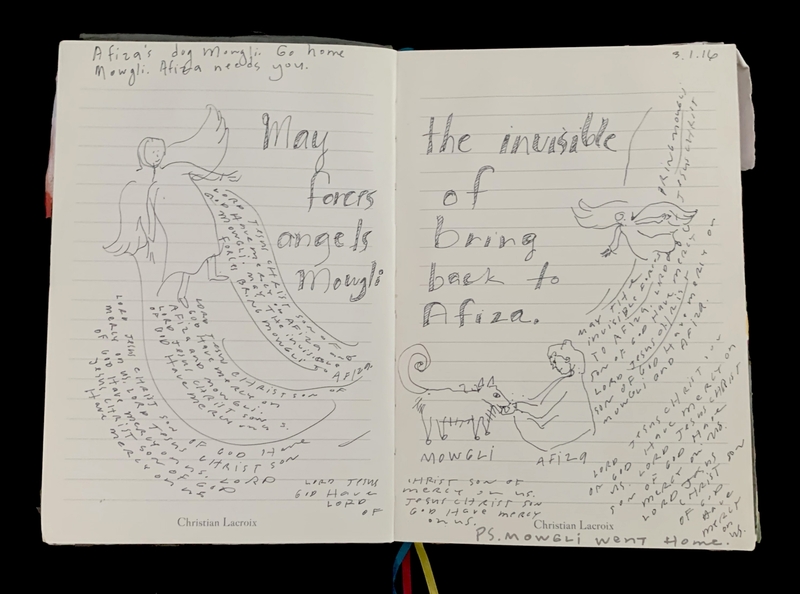 Afiza's dog Mowgli. Go home
Mowgli. Afiza needs you.
3.1.16
May the invisible
forces of
angels bring
Mowgli back to
Afiza.
LORD JESUS CHRIST SON OF
GOD HAVE MERCY ON AFIZA AND
MOWGLI. MAY THE INVISIBLE
FORCES BRING MOWGLI TO AFIZA
LORD JESUS CHRIST SON OF
GOD HAVE MERCY ON
AFIZA AND MOWGLI.
LORD JESUS CHRIST SON
OF GOD HAVE MERCY ON
LORD JESUS CHRIST SON OF GOD HAVE
MERCY ON US LORD JESUS CHRIST SON
OF GOD HAVE MERCY ON US. LORD
JESUS CHRIST SON OF GOD
HAVE MERCY ON US
LORD JESUS
GOD HAVE
LORD
OF
Christian Lacroix
BRING MOWGLI
JESUS CHRIST
MAY THE
INVISIBLE
TO AFIZA. LORD
SON OF GOD HAVE MERCY ON
LORD JESUS CHRIST
SON OF GOD HAVE MERCY ON
MOWGLI AND AFIZA.
MOWGLI
AFIZA
CHRIST SON OF
MERCY ON US.
JESUS CHRIST SON
GOD HAVE MERCY
ON US.
LORD JESUS CHRIST
OF GOD HAVE MERCY ON
US. LORD JESUS CHRIST
SON OF GOD HAVE
MERCY ON US.
LORD JESUS
CHRIST SON
OF GOD
HAVE
MERCY
ON US.
Christian Lacroix
PS. MOWGLI WENT HOME.